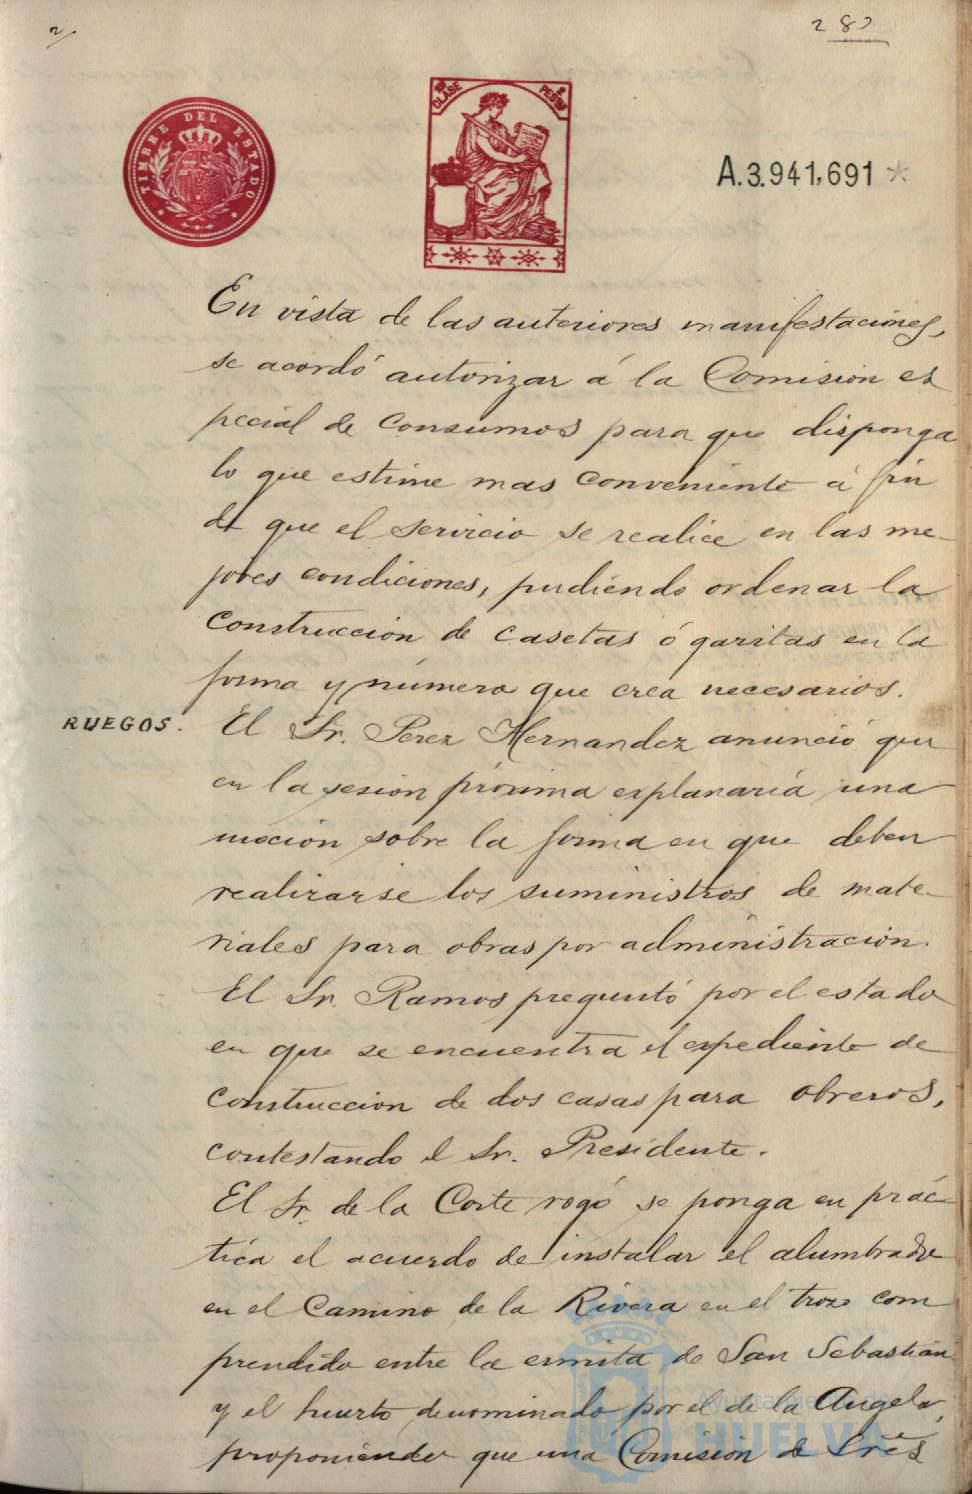 28
TIMBRE DEL ESTADO
CLASE
PESETAS
A.3.941,691 *
En vista de las anteriores manifestaciones,
se acordó autorizar á la Comision es
pecial de Consumos para que disponga
lo que estime mas conveniente á fin
de que el servicio se realice en las me-
jores condiciones, pudiendo ordenar la
Construccion de casetas ó garitas en la
forma y número que crea necesarios.
RUEGOS.
El Sr. Perez Hernandez anunció que
en la sesion próxima explanaría una
mocion sobre la forma en que deben
realizarse los suministros de mate-
riales para obras por administracion.
El Sr. Ramos preguntó por el estado
en que se encuentra el expediente de
construccion de dos casas para obreros,
contestando el Sr. Presidente.
El Sr. de la Corte rogó se ponga en prác-
tica el acuerdo de instalar el alumbrado
en el Camino de la Rivera en el trozo com
prendido entre la ermita de San Sebastian
y el huerto denominado por el de la Angela,
proponiendo que una Comision de Sres
Ayuntamiento de
HUELVA